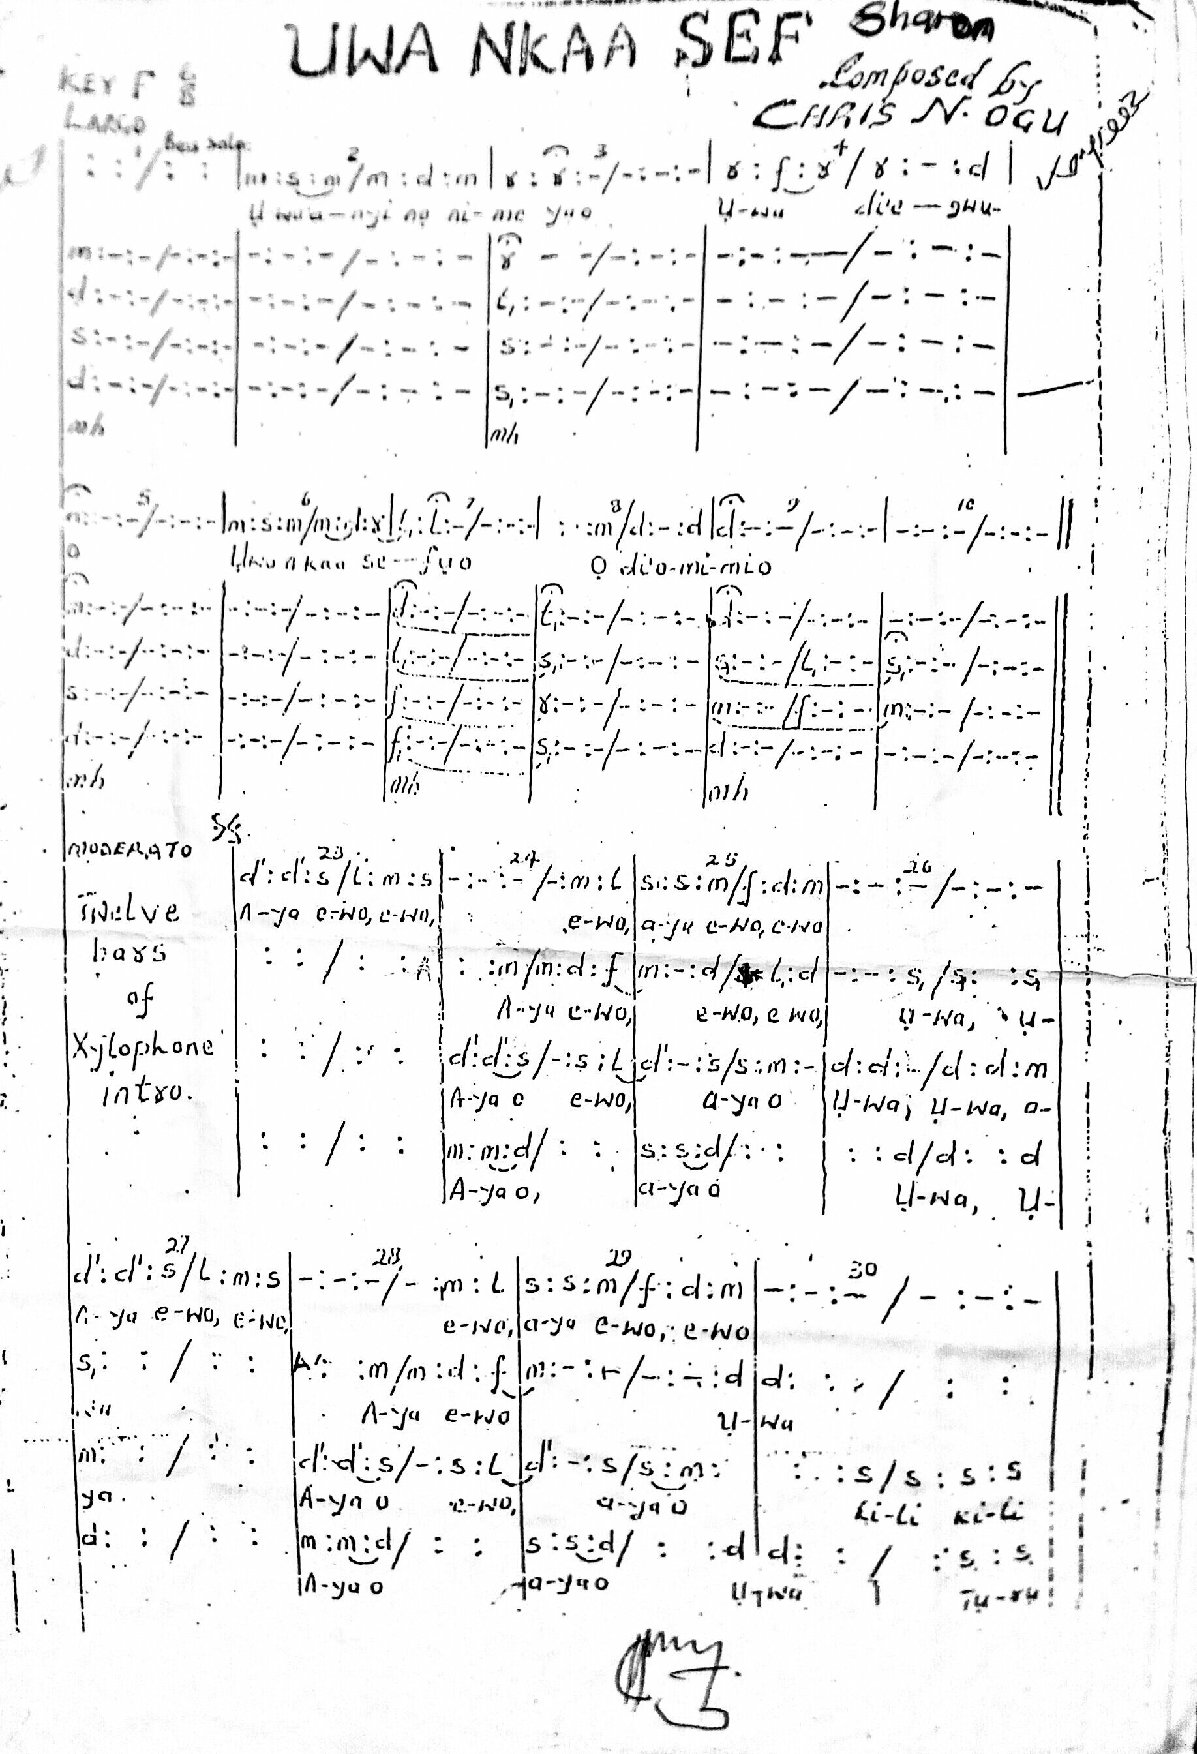 UWA NKAA SEF Sharon
Composed by
CHRIS N. OGU
KEY F 6/8
LARGO
: : / : : | m : s : m / m : d : m | r : r : - / - : - : - | r : f : r / r : - : d |
U-wa die - gwu-
m : - : - / - : - : - | - : - : - / - : - : - | r - - / - : - : - | - : - : - / - : - : - |
d : - : - / - : - : - | - : - : - / - : - : - | t, : - : - / - : - : - | - : - : - / - : - : - |
s : - : - / - : - : - | - : - : - / - : - : - | s : - : - / - : - : - | - : - : - / - : - : - |
d : - : - / - : - : - | - : - : - / - : - : - | s, : - : - / - : - : - | - : - : - / - : - : - |
mh mh
5 6 7 8 9 10
m : - : - / - : - : - | m : s : m / m : d : r | l, : l, : - / - : - : - | : : m / d : - : d | d : - : - / - : - : - | - : - : - / - : - : - ||
o Ụwa nkaa se - fụo Ọ dị'o-mi-mi o
m : - : - / - : - : - | - : - : - / - : - : - | d : - : - / - : - : - | t, : - : - / - : - : - | d : - : - / - : - : - | - : - : - / - : - : - ||
d : - : - / - : - : - | - : - : - / - : - : - | l, : - : - / - : - : - | s, : - : - / - : - : - | s, : - : - / l, : - : - | s, : - : - / - : - : - ||
s : - : - / - : - : - | - : - : - / - : - : - | f : - : - / - : - : - | r : - : - / - : - : - | m : - : - / f : - : - | m : - : - / - : - : - ||
d : - : - / - : - : - | - : - : - / - : - : - | f, : - : - / - : - : - | s, : - : - / - : - : - | d : - : - / - : - : - | - : - : - / - : - : - ||
mh mh mh
MODERATO
Twelve
bars
of
Xylophone
intro.
23 24 25 26
d' : d' : s / l : m : s | - : - : - / - : m : l | s : s : m / f : d : m | - : - : - / - : - : - |
A-ya e-wo, e-wo, e-wo, a-ya e-wo, e-wo
: : / : : | : : m / m : d : f | m : - : d / l, : d | - : - : s, / s, : : s, |
A-ya e-wo, e-wo, e wo, Ụ-wa, Ụ-
: : / : : | d' : d' : s / - : s : l | d' : - : s / s : m : - | d : d : - / d : d : m |
A-ya o e-wo, a-ya o Ụ-wa, Ụ-wa, o-
: : / : : | m : m : d / : : | s : s : d / : : | : : d / d : : d |
A-ya o, a-ya o Ụ-wa, Ụ-
27 28 29 30
d' : d' : s / l : m : s | - : - : - / - : m : l | s : s : m / f : d : m | - : - : - / - : - : - |
A-ya e-wo, e-wo, e-wo, a-ya e-wo, e-wo
s, : : / : : | : : m / m : d : f | m : - : - / - : - : d | d : : / : : |
A-ya e-wo Ụ-wa
m : : / : : | d' : d' : s / - : s : l | d' : - : s / s : m : | : : s / s : s : s
ya. A-ya o e-wo, a-ya o ki-li ki-li
d : : / : : | m : m : d / : : | s : s : d / : : d | d : : / : s, : s,
A-ya o a-ya o Ụ-wa Tụ-rụ